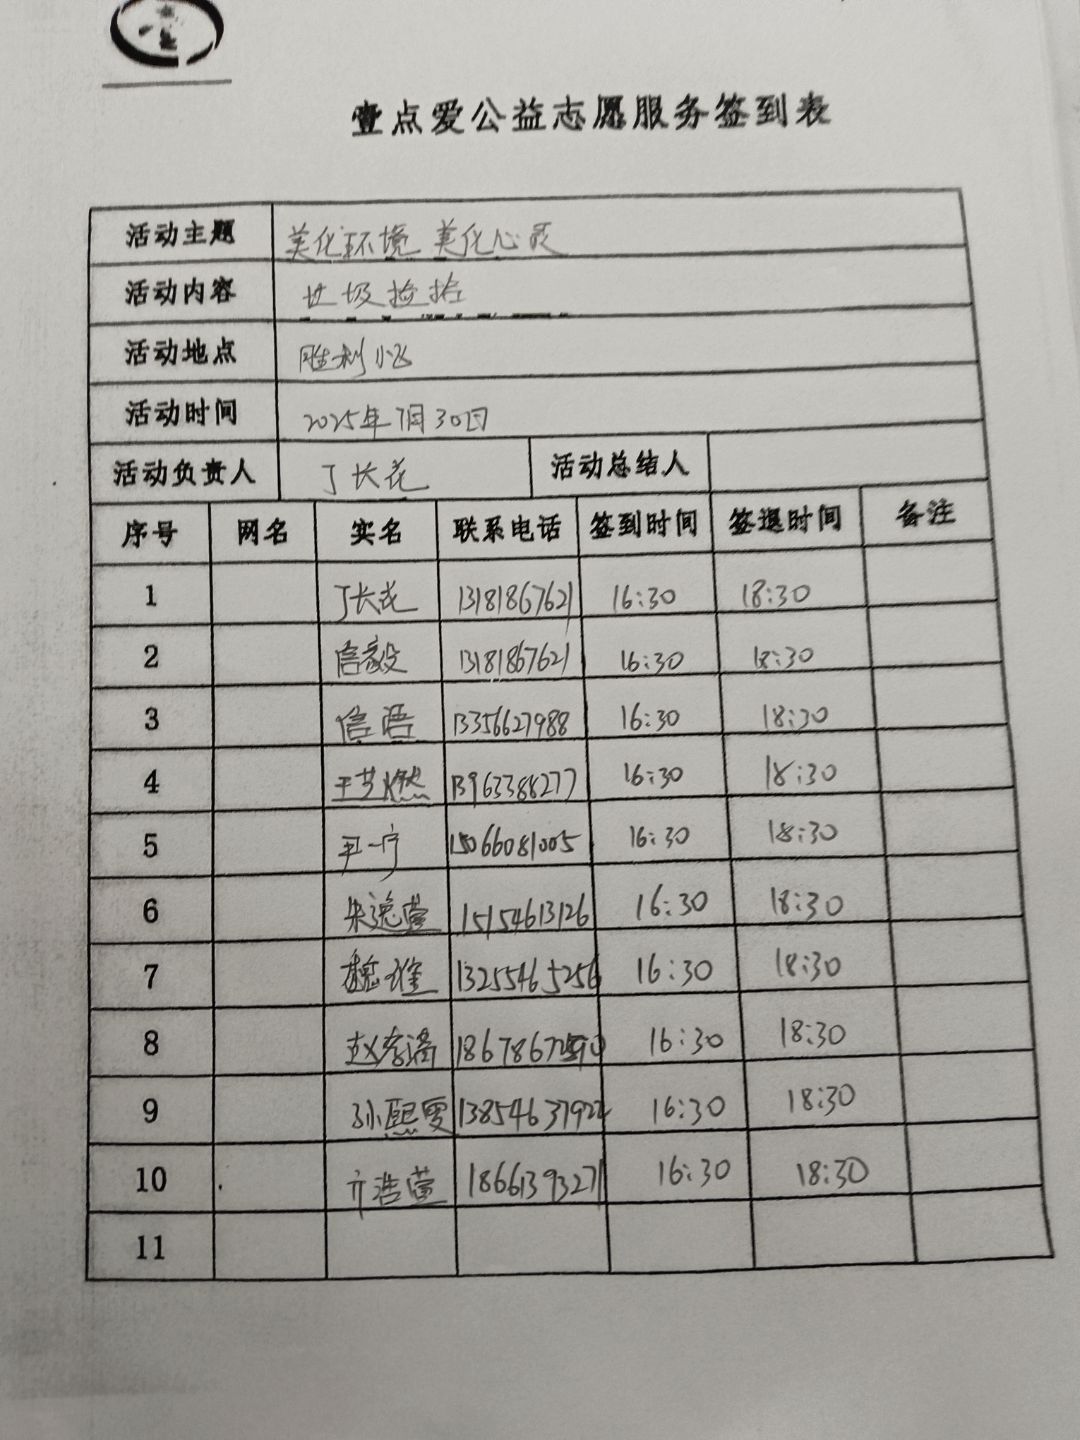 壹点爱公益志愿服务签到表
活动主题 美化环境 美化心灵
活动内容 垃圾捡拾
活动地点 胜利小区
活动时间 2025年7月30日
活动负责人 丁长花 活动总结人
序号 网名 实名 联系电话 签到时间 签退时间 备注
1 丁长花 13181867621 16:30 18:30
2 信毅 13181867621 16:30 18:30
3 信语 13356627988 16:30 18:30
4 王艺燃 13963388277 16:30 18:30
5 王一宁 15066081005 16:30 18:30
6 朱逸萱 15154613126 16:30 18:30
7 13255465256 16:30 18:30
8 16:30 18:30
9 孙熙雯 16:30 18:30
10 浩萱 18661393271 16:30 18:30
11